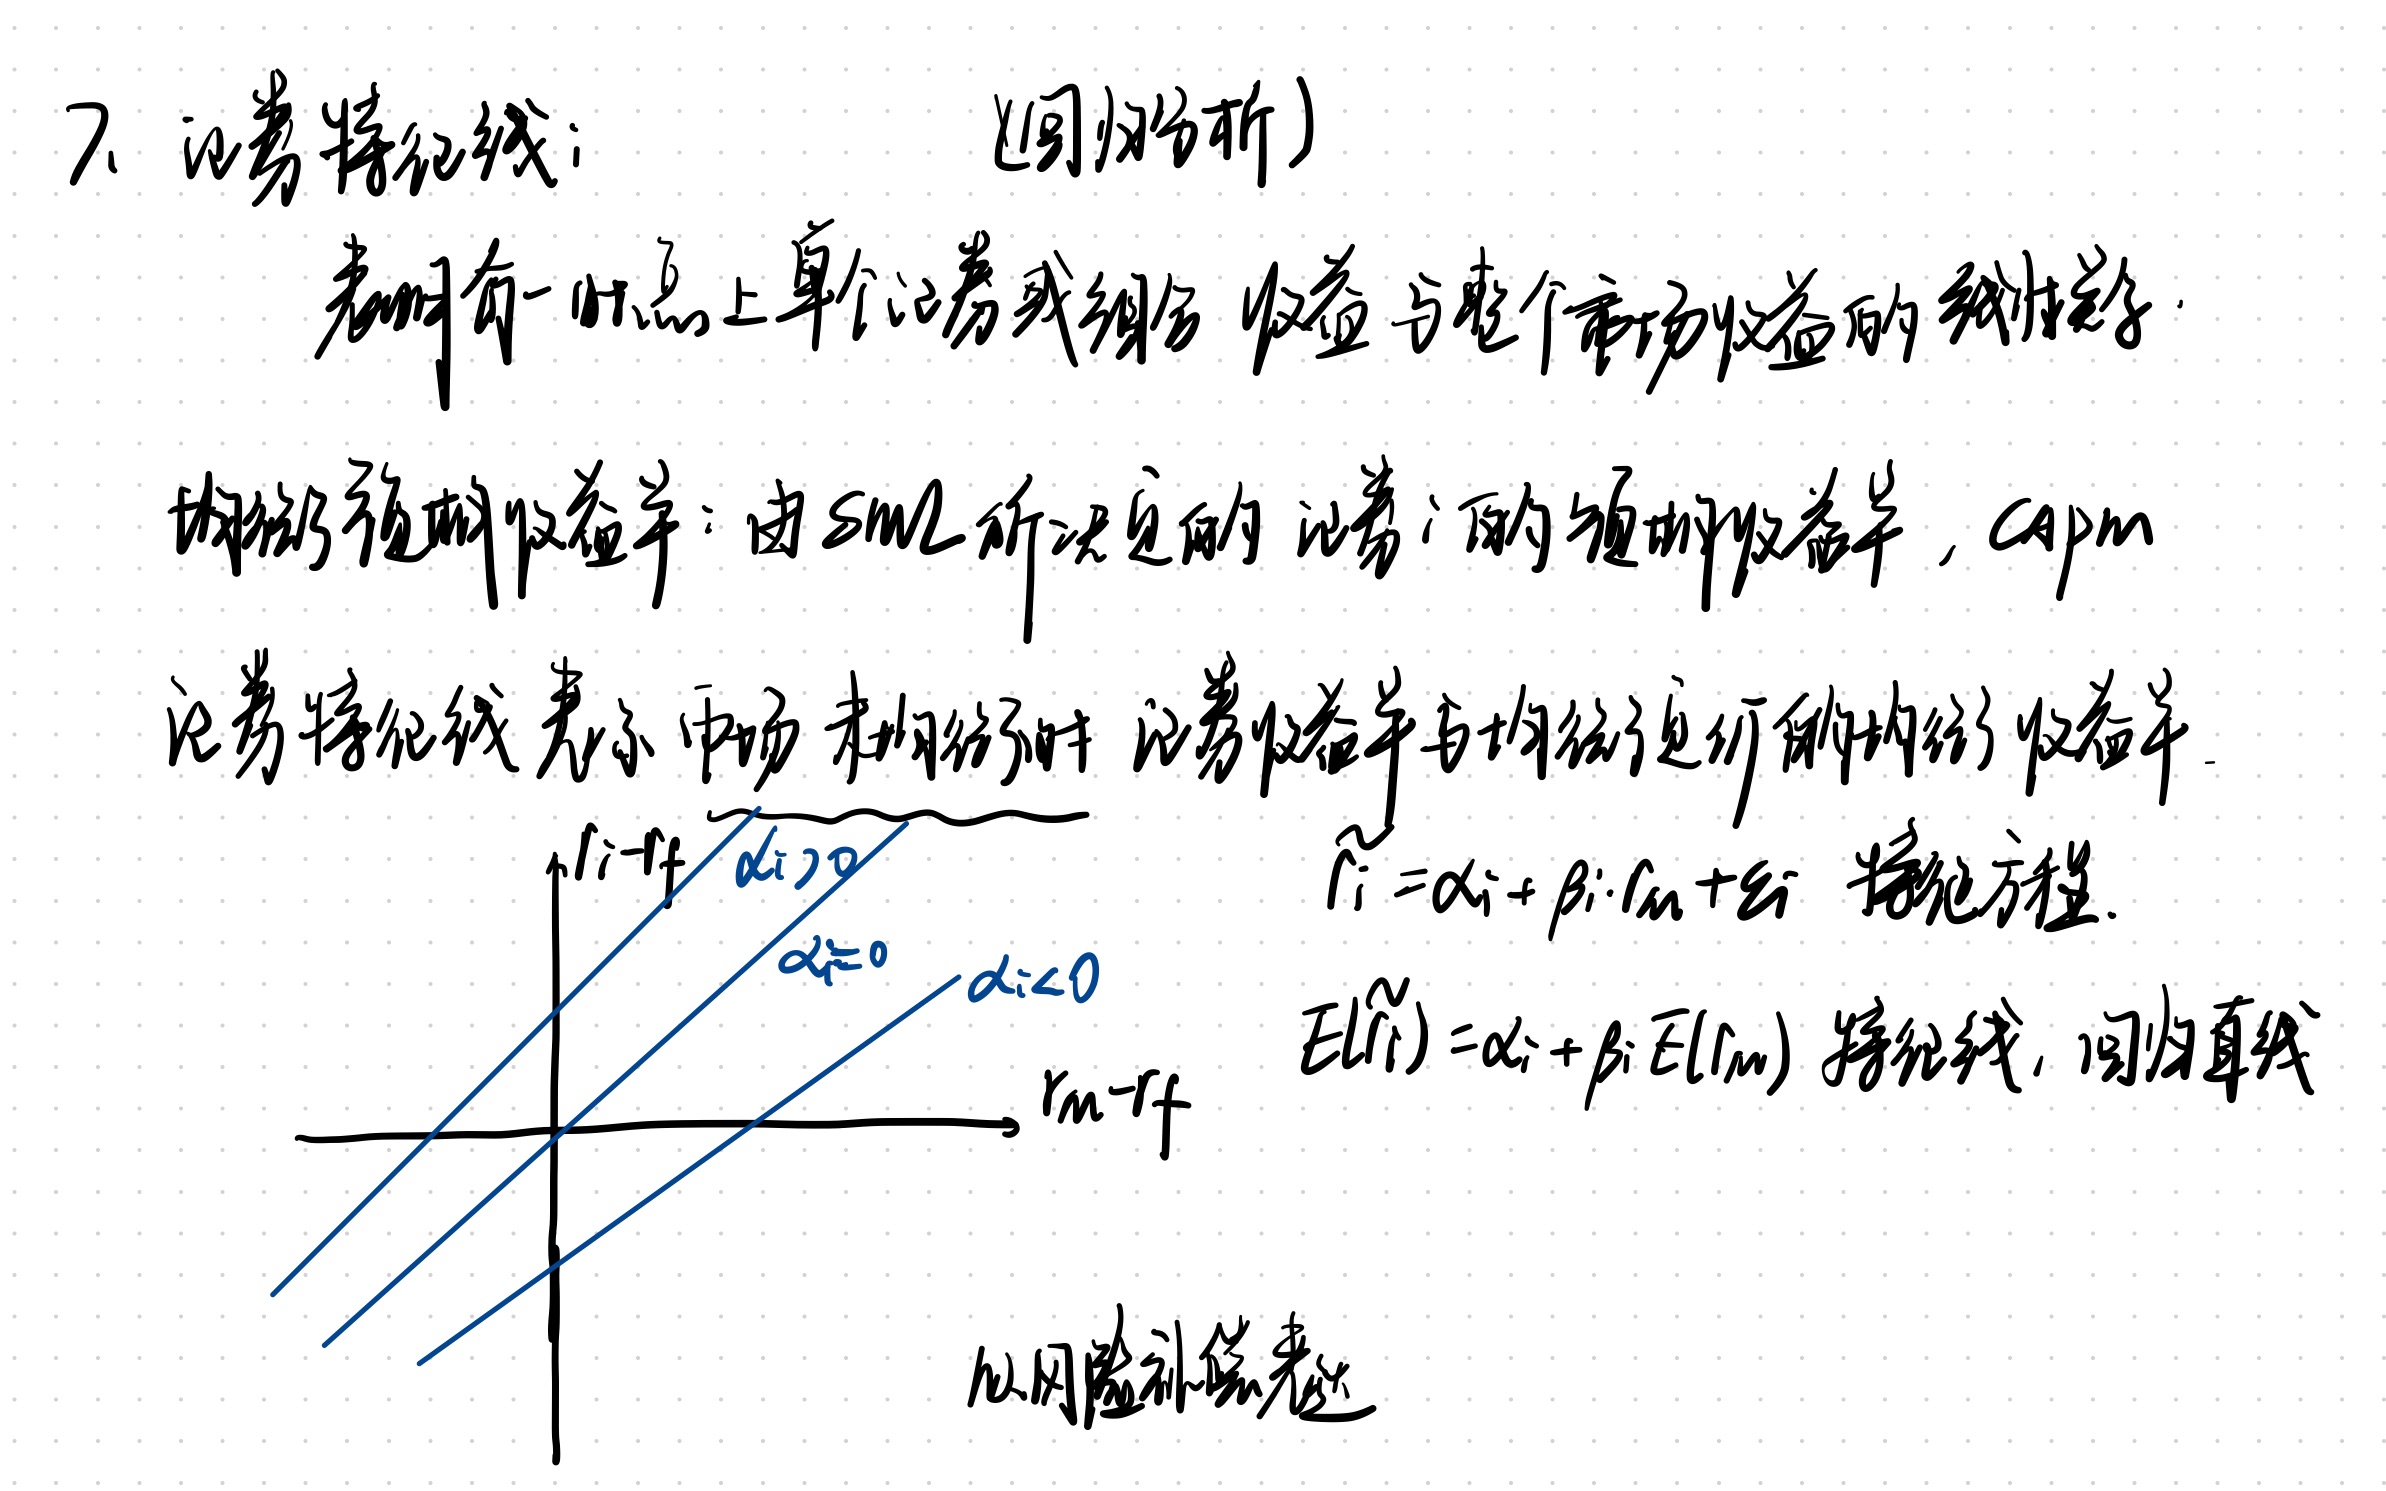 7. 证券特征线: (回归分析)
表明在一时点上单个证券或组合 收益与整个市场收益间的线性关系.
均衡的预期收益率: 由SML所决定的证券i的预期收益率, CAPM
证券特征线表示 市场未均衡时 证券收益率与均衡进行偏均衡收益率.
ri-rf
αi>0
r̃i=αi+βi·rm+εi 特征方程.
αi=0
αi<0
E(r̃i)=αi+βiE(rm) 特征线, 回归直线
rm-rf
以风险补偿表达